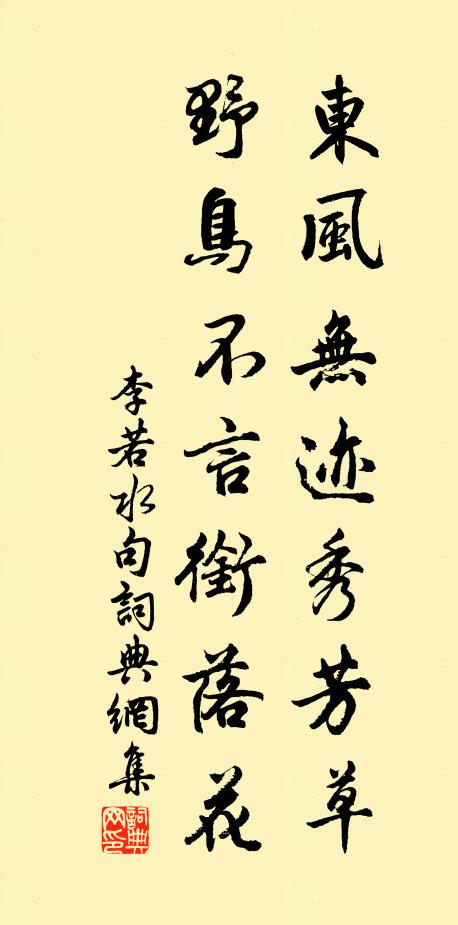 東風無迹秀芳草
野鳥不言銜落花
李若水句詞典網集
詞典网印